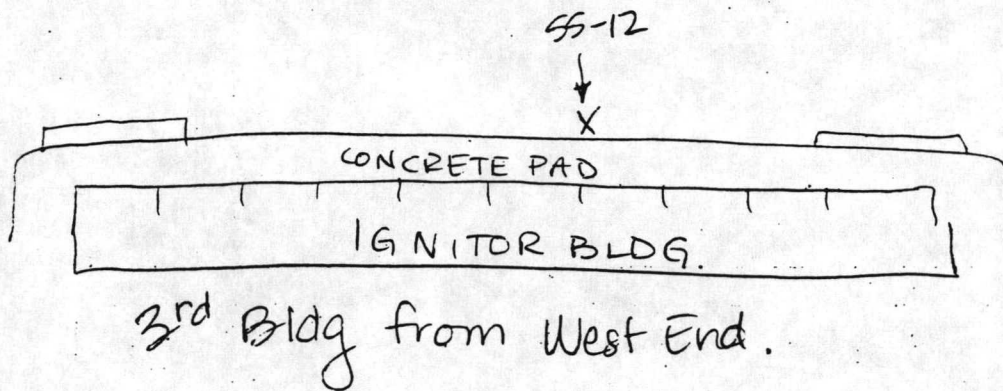 SS-12
X
CONCRETE PAD
IGNITOR BLDG.
3rd Bldg from West End.